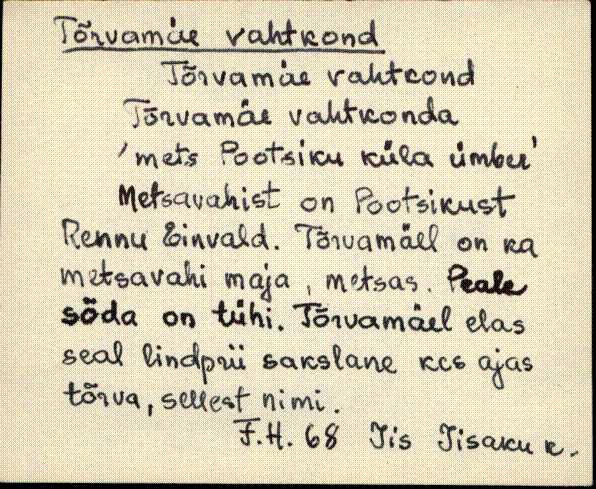 Tõrvamäe vahtkond
Tõrvamäe vahtkond
Tõrvamäe vahtkonda
'mets Pootsiku küla ümber'
Metsavahist on Pootsikust
Rennu Einvald. Tõrvamäel on ka
metsavahi maja, metsas. Peale
sõda on tühi. Tõrvamäel elas
seal lindprii sakslane kes ajas
tõrva, sellest nimi.
F.H. 68 Iis Iisaku k.